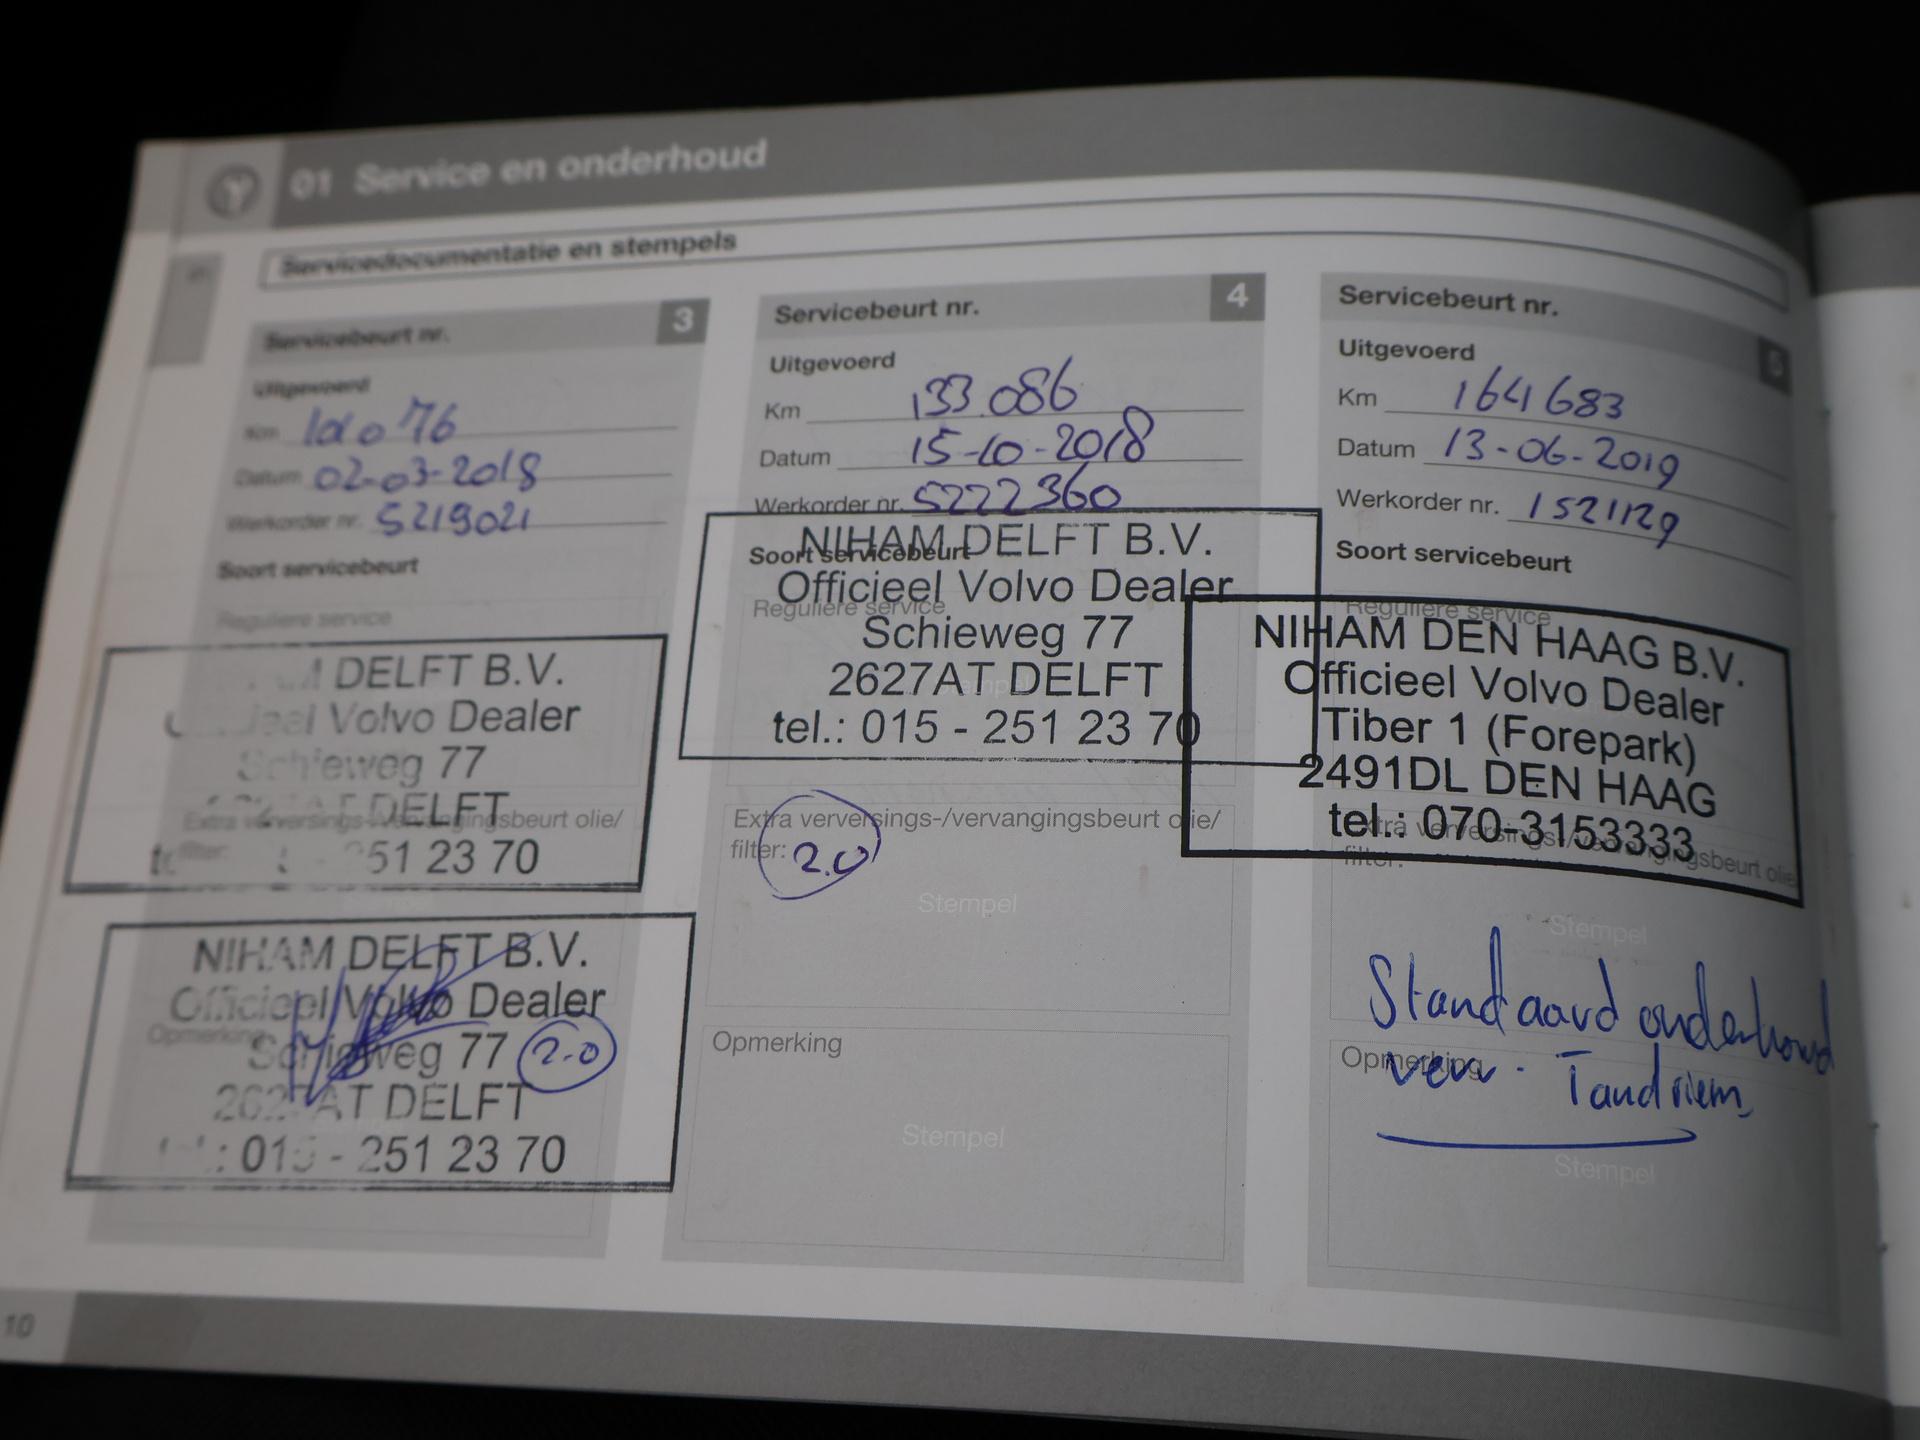 01 Service en onderhoud
01
Servicedocumentatie en stempels
Servicebeurt nr. 3
Uitgevoerd
Km
Datum 02-03-2018
Werkorder nr. 5219021
Soort servicebeurt
Reguliere service
M DELFT B.V.
Officieel Volvo Dealer
Schieweg 77
DELFT
Extra verversings-/vervangingsbeurt olie/
filter:
251 23 70
NIHAM DELFT B.V.
Officieel Volvo Dealer
Opmerking
Schieweg 77 2.0
2627AT DELFT
tel.: 015 - 251 23 70
Servicebeurt nr. 4
Uitgevoerd
Km 133.086
Datum 15-10-2018
Werkorder nr. 5222360
NIHAM DELFT B.V.
Soort servicebeurt
Officieel Volvo Dealer
Reguliere service
Schieweg 77
2627AT DELFT
Stempel
tel.: 015 - 251 23 70
Extra verversings-/vervangingsbeurt olie/
filter: 2.0
Stempel
Opmerking
Stempel
Servicebeurt nr. 5
Uitgevoerd
Km 164683
Datum 13-06-2019
Werkorder nr. 1521129
Soort servicebeurt
Reguliere service
NIHAM DEN HAAG B.V.
Officieel Volvo Dealer
Tiber 1 (Forepark)
2491DL DEN HAAG
tel.: 070-3153333
Extra verversings-/vervangingsbeurt olie/
filter:
Stempel
Standaard onderhoud
Opmerking
verv. Tandriem
Stempel
10